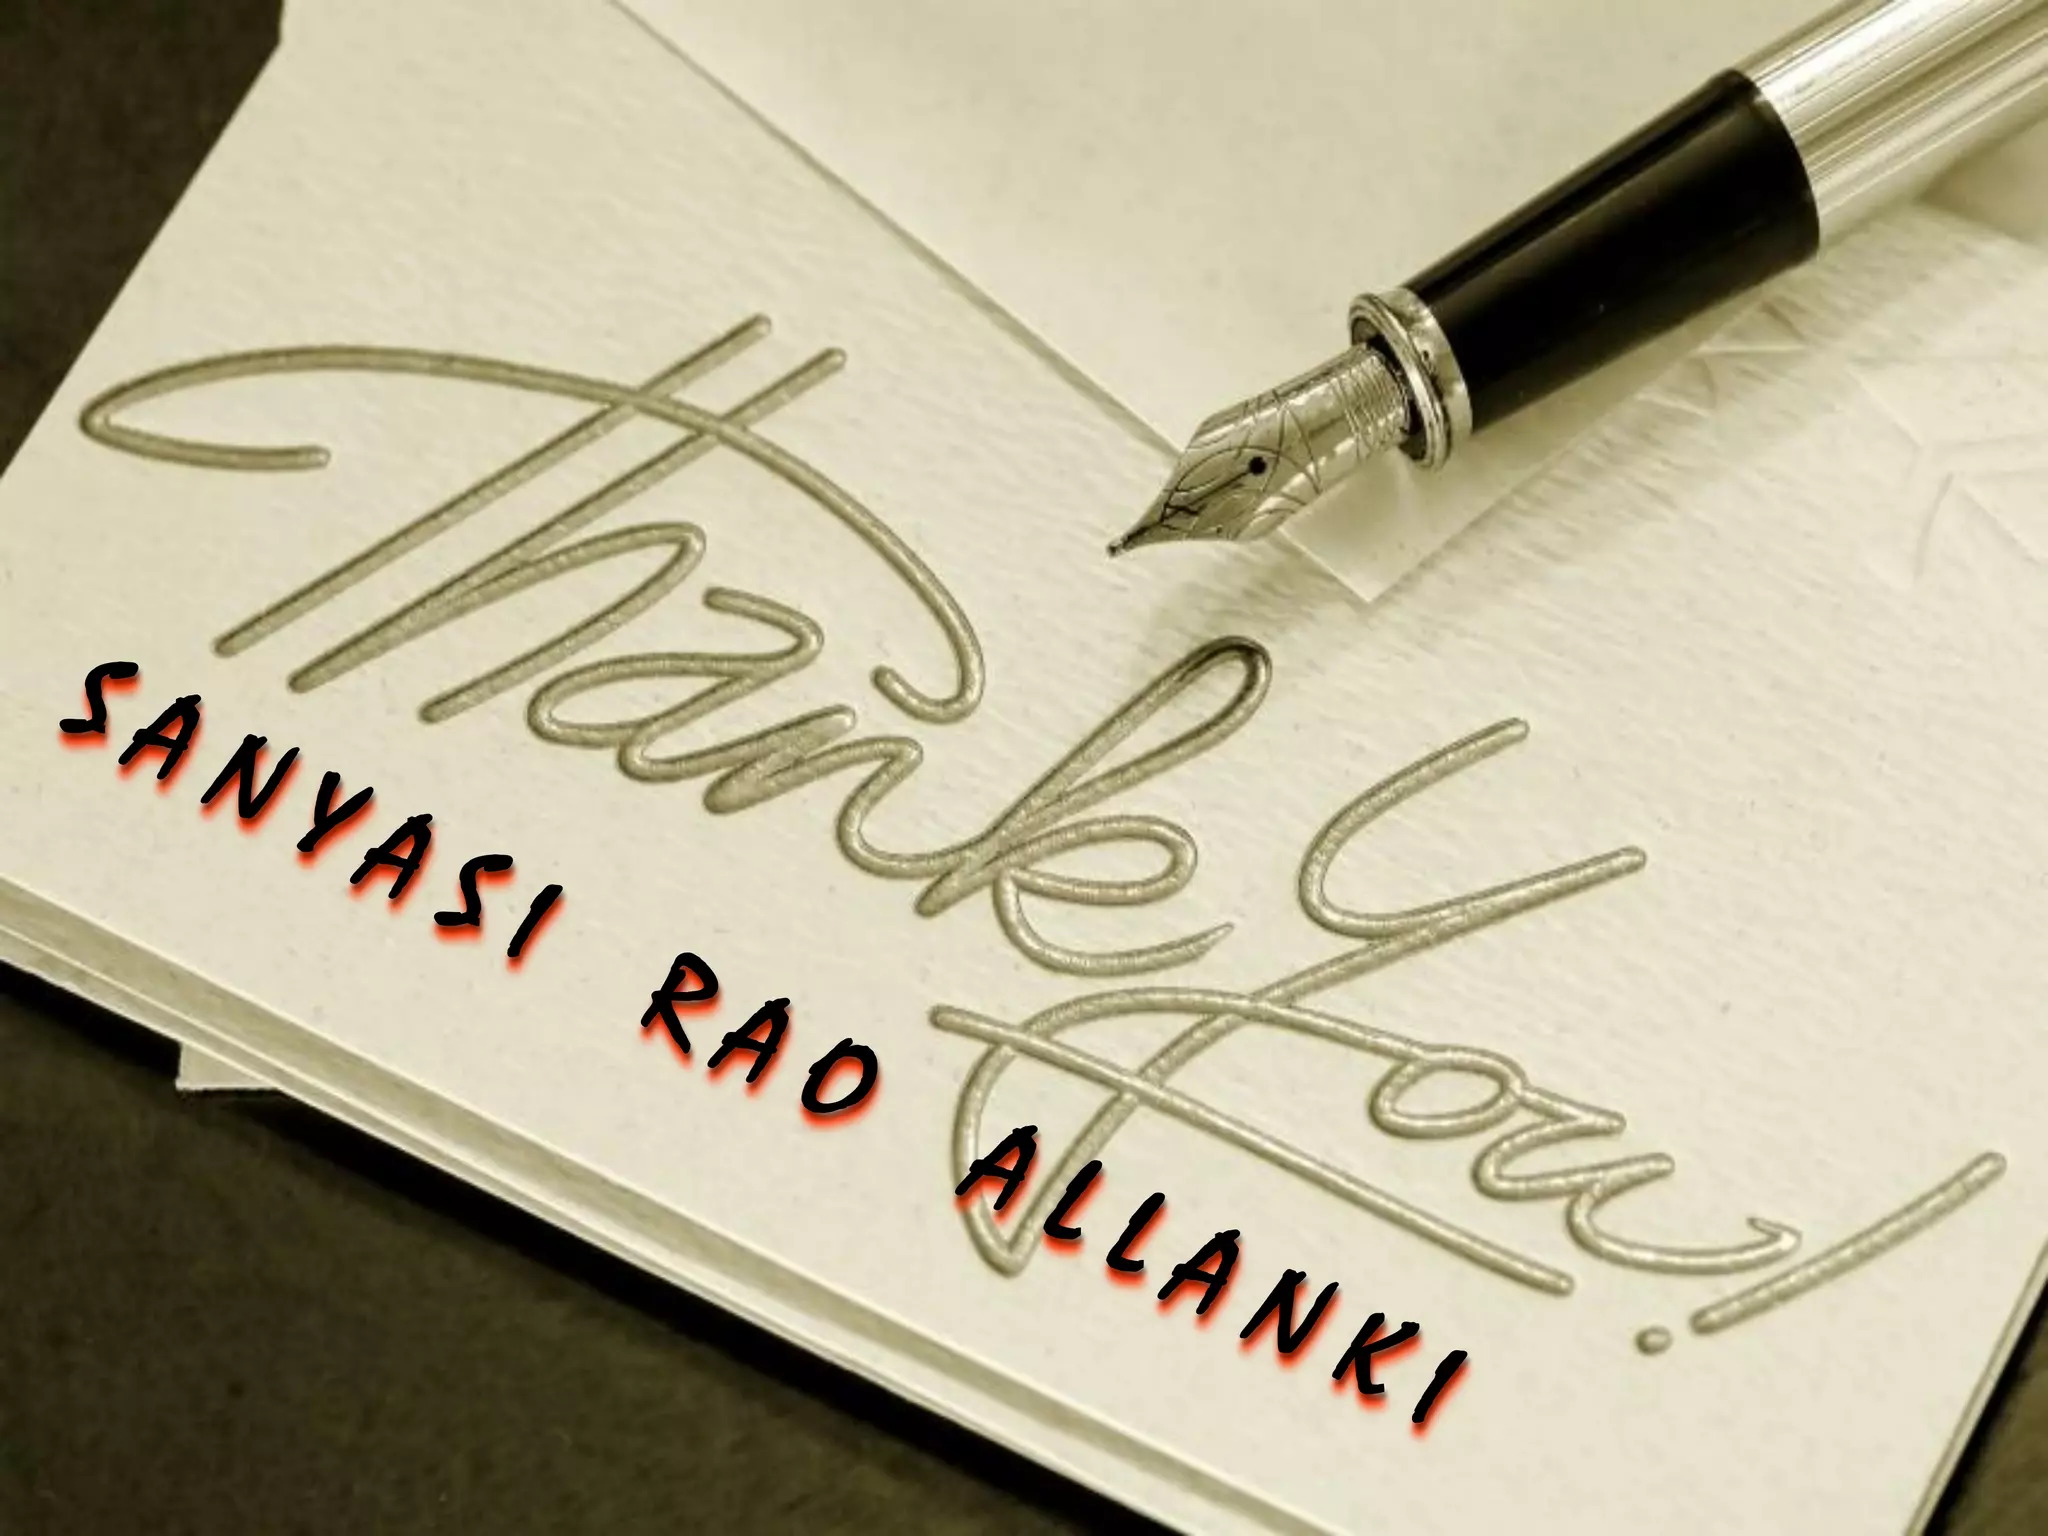 Thank You!
SANYASI RAO ALLANKI